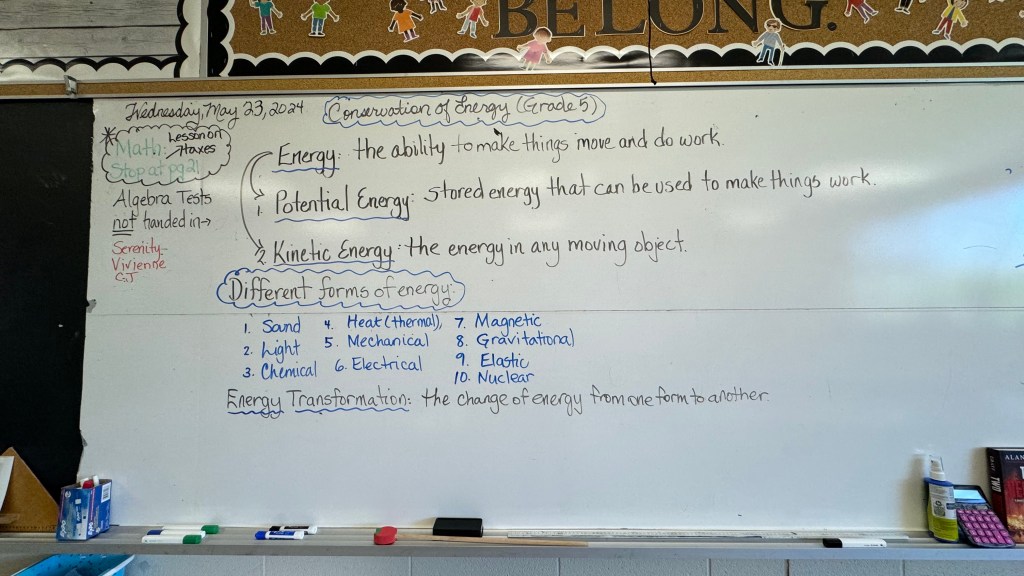 BELONG.
Wednesday, May 23, 2024
Conservation of Energy (Grade 5)
* Math: Lesson on
Taxes
Stop at pg 21
Algebra Tests
not handed in→
Serenity
Vivienne
CJ
Energy: the ability to make things move and do work.
1. Potential Energy: stored energy that can be used to make things work.
2 Kinetic Energy: the energy in any moving object.
Different forms of energy:
1. Sound
2. Light
3. Chemical
4. Heat (thermal),
5. Mechanical
6. Electrical
7. Magnetic
8. Gravitational
9. Elastic
10. Nuclear
Energy Transformation: the change of energy from one form to another.
ALAN
TWO